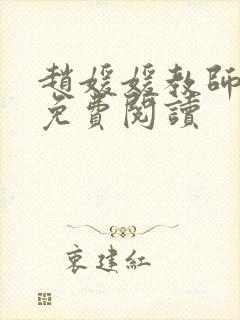 趙媛媛教師
免費閱讀
衷建紅